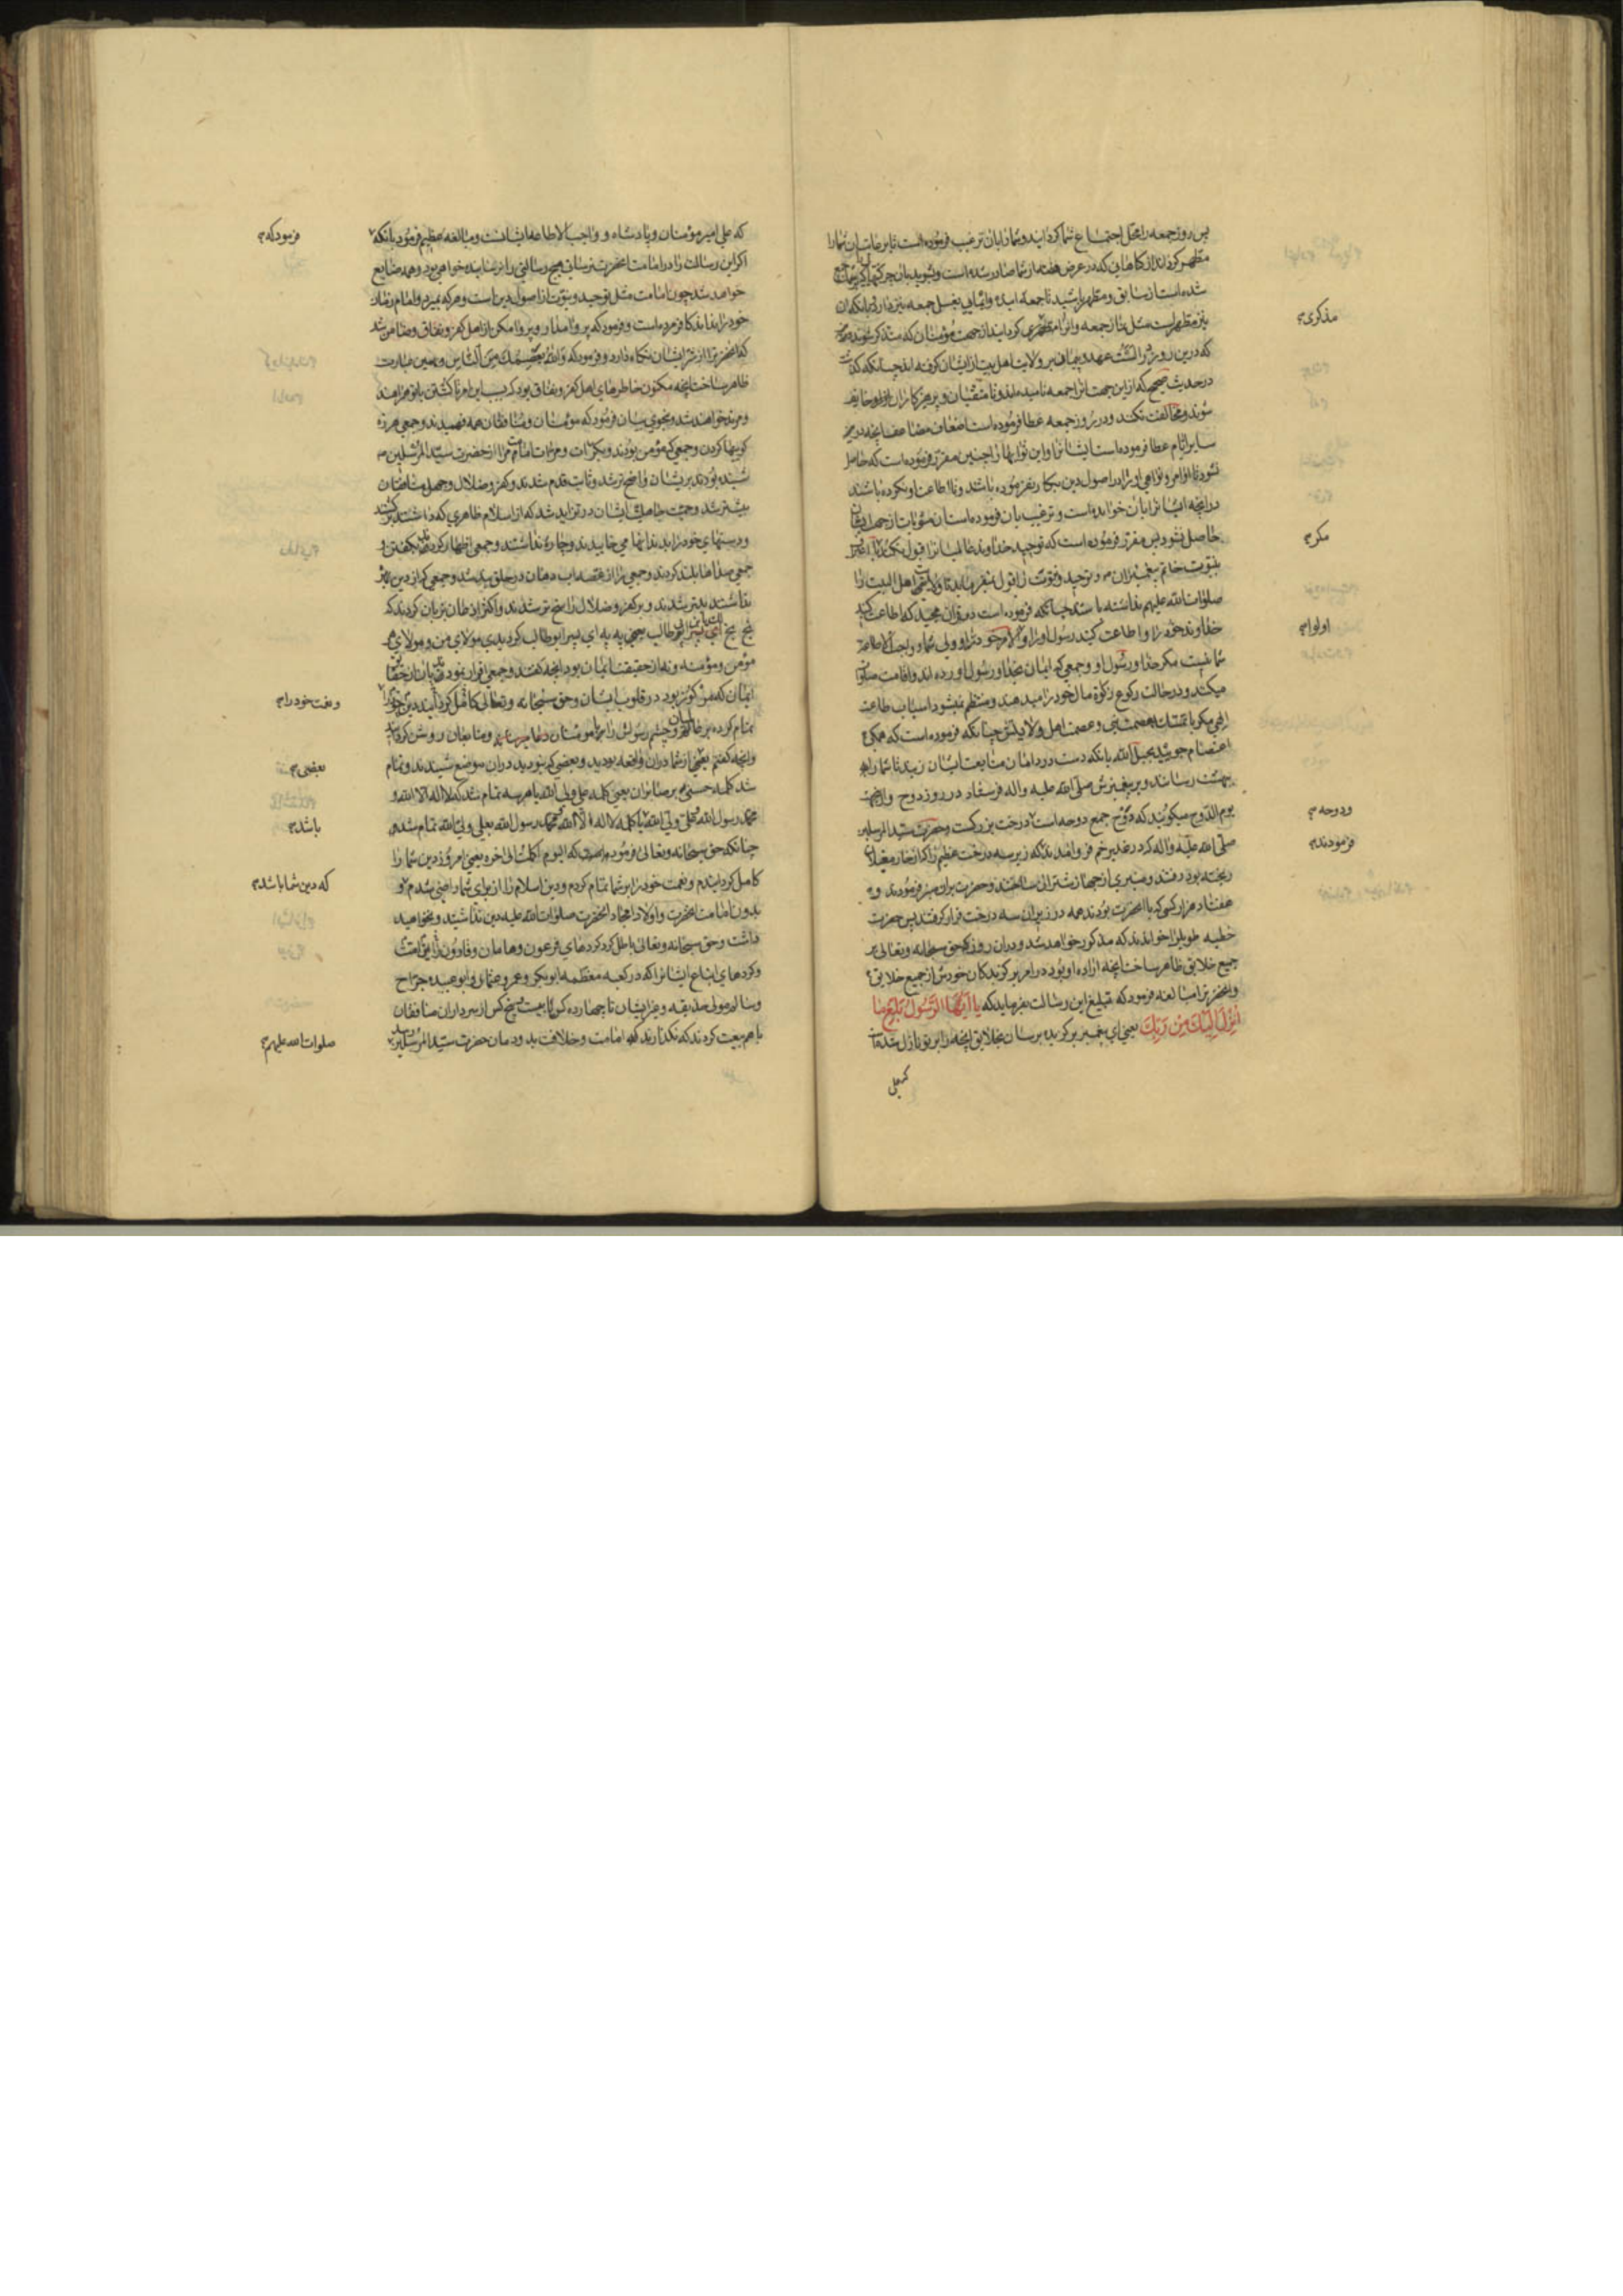 پس روز جمعه را محل اجتماع شما کردانید و شما را بان ترغیب فرموده است تا برکات ان شما را
مطهر کرداند از کناهانی که در عرض هفته از شما صادر شده است و بشوید بان چرکها که جمع
شده است از سابق و مطهر باشید تا جمعه اینده و ایمایی بغسل جمعه نیز دارد بانکه ان
نیز مطهر است مثل نماز جمعه و انرا کردانید از جهت مؤمنان که متذکر شوند
که درین روز در الست عهد و پیمان بر ولایت اهل بیت از ایشان کرفته اند چنانکه کذشت
در حدیث صحیح که از این جهت انرا جمعه نامیده اند و تا متقیان و پرهیزکاران از او خایف
شوند و مخالفت نکنند و در روز جمعه عطا فرموده است اضعاف مضاعف انچه در
سایر ایام عطا فرموده است ایشانرا و این ثوابها را چنین مقرر فرموده است که حاصل
نشود تا اوامر و نواهی او را در اصول دین بکار نفرموده باشند و تا اطاعت او نکرده باشند
در انچه ایشانرا بان خوانده است و ترغیب بان فرموده است ان مثوبات از جهت ایشان
حاصل نشود پس مقرر فرموده است که توحید خداوند عالمیانرا قبول نکند
بنبوت خاتم پیغمبران و توحید و نبوت را قبول نفرماید تا ولایت اهل البیت را
صلوات الله علیهم نداشته باشند چنانکه فرموده است در قران مجید که اطاعت کنید
خداوند خود را و اطاعت کنید رسول او را و الامر خود را و ولی شما و واجب الاطاعة
شما نیست مکر خدا و رسول او و جمعی که ایمان بخدا و رسول اورده اند و اقامت صلوة
میکنند و در حالت رکوع زکوة مال خود را میدهند و منتظم نمیشود اسباب طاعت
الهی مکر با تمسک بعصمتش و عصمت اهل ولایتش چنانکه فرموده است که همکی
اعتصام جویید بحبل الله بانکه دست در دامان متابعت ایشان زنید تا شما را
بهشت رسانند و بر پیغمبرش صلی الله علیه و اله فرستاد در روز دوح
یوم الدوح میکویند که دوح جمع دوحه است درخت بزرکست و حضرت سید المرسلین
صلی الله علیه و اله که در غدیر خم فرود امدند که زیر سه درخت عظیم را که از خار مغیلان
ریخته بود رفتند و منبری از جهاز شتران ساختند و حضرت بران منبر فرمودند و
هفتاد هزار کس که با انحضرت بودند همه در زیر ان سه درخت قرار کرفتند پس حضرت
خطبه طویلرا خواندند که مذکور خواهد شد و در ان روز که حق سبحانه و تعالی بر
جمیع خلایق ظاهر ساخت انچه اراده او بود در امر برکزیدکان خودش از جمیع خلایق
و انحضرترا مبالغه فرمود که تبلیغ این رسالت بفرماید که یا ایها الرسول بلغ ما
انزل الیک من ربک یعنی ای پیغمبر برکزیده برسان بخلایق انچه را بر تو نازل شده است
که علی
مذکری
مکر
اولوا
و دوحه
فرمودند
که علی امیر مؤمنان و پادشاه و واجب الاطاعه ایشانست و مبالغه عظیم فرمود بانکه
اکر این رسالت را در امامت انحضرت نرسانی هیچ رسالتی را نرسانیده خواهی بود و همه ضایع
خواهد شد چون امامت مثل توحید و نبوت از اصول دین است و هر که بمیرد و امام زمان
خود را نداند کافر مرده است و فرمود که پروا مدار و پروا مکن از اهل کفر و نفاق و ضامن شد
که انحضرترا از شر ایشان نکاه دارد و فرمود که والله یعصمک من الناس و بهمین عبارت
ظاهر ساخت انچه مکنون خاطرهای اهل کفر و نفاق بود که بسبب این امر تا کشتن باتو همراهند
و مرتد خواهند شد و بنحوی بیان فرمود که مؤمنان و منافقان همه فهمیدند و جمعی هرزه
کوییها کردن و جمعی که مؤمن بودند و بکرات و مرات امامت مرا از حضرت سید المرسلین
شنیده بودند بریشان واضح تر شد و ثابت قدم شدند و کفر و ضلال و جهل منافقان
بیشتر شد و حمیت جاهلیت ایشان در تزاید شد که از اسلام ظاهری که داشتند برکشتند
و دستهای خود را بدندانها می خاییدند و چاره نداشتند و جمعی اظهار کردند بکفتن و
جمعی صداها بلند کردند و جمعی را از غصه اب دهان در حلق بند شد و جمعی که از دین بهره
نداشتند بدتر شدند و بر کفر و ضلال راسخ تر شدند و اکثر اذعان بزبان کردند که
بخ بخ لک یابن ابی طالب یعنی به به ای پسر ابو طالب کردیدی مولای من و مولای هر
مؤمن و مؤمنه و نه از حقیقت ایمان بود انچه کفتند و جمعی اقرار نمودند بزبان از حقیقت
ایمان که مرکوز بود در قلوب ایشان و حق سبحانه و تعالی کامل کردانید دین خود را
تمام کرده بر خلایق و چشم رسولش را با مؤمنان و متابعان روشن کردانید
و انچه کفتم بعضی از شما در ان واقعه بودید و بعضی که نبودید در ان موضع شنیدند و تمام
شد کلمه حسنی بر صابران یعنی کلمه علی ولی الله یا هر سه تمام شد که لا اله الا الله و
محمد رسول الله و علی ولی الله یا کلمه لا اله الا الله محمد رسول الله بعلی ولی الله تمام شد
چنانکه حق سبحانه و تعالی فرموده است که الیوم اکملت الی اخره یعنی امروز دین شما را
کامل کردانیدم و نعمت خود را بر شما تمام کردم و دین اسلام را از برای شما راضی شدم و
بدون امامت انحضرت و اولاد امجاد انحضرت صلوات الله علیه دین نداشتید و نخواهید
داشت و حق سبحانه و تعالی باطل کرد کردهای فرعون و هامان و قارون این امت
و کردهای اتباع ایشانرا که در کعبه معظمه ابو بکر و عمر و عثمان و ابو عبیده جراح
و سالم مولی حذیفه و غیر ایشان تا چهارده کس یا بیست و پنج کس از سرداران منافقان
باهم بیعت کردند که نکذارند که امامت و خلافت بدودمان حضرت سید المرسلین رسد
فرمود که
و نعمت خود را
بعضی
باشد
که دین شما باشد
صلوات الله علیهم